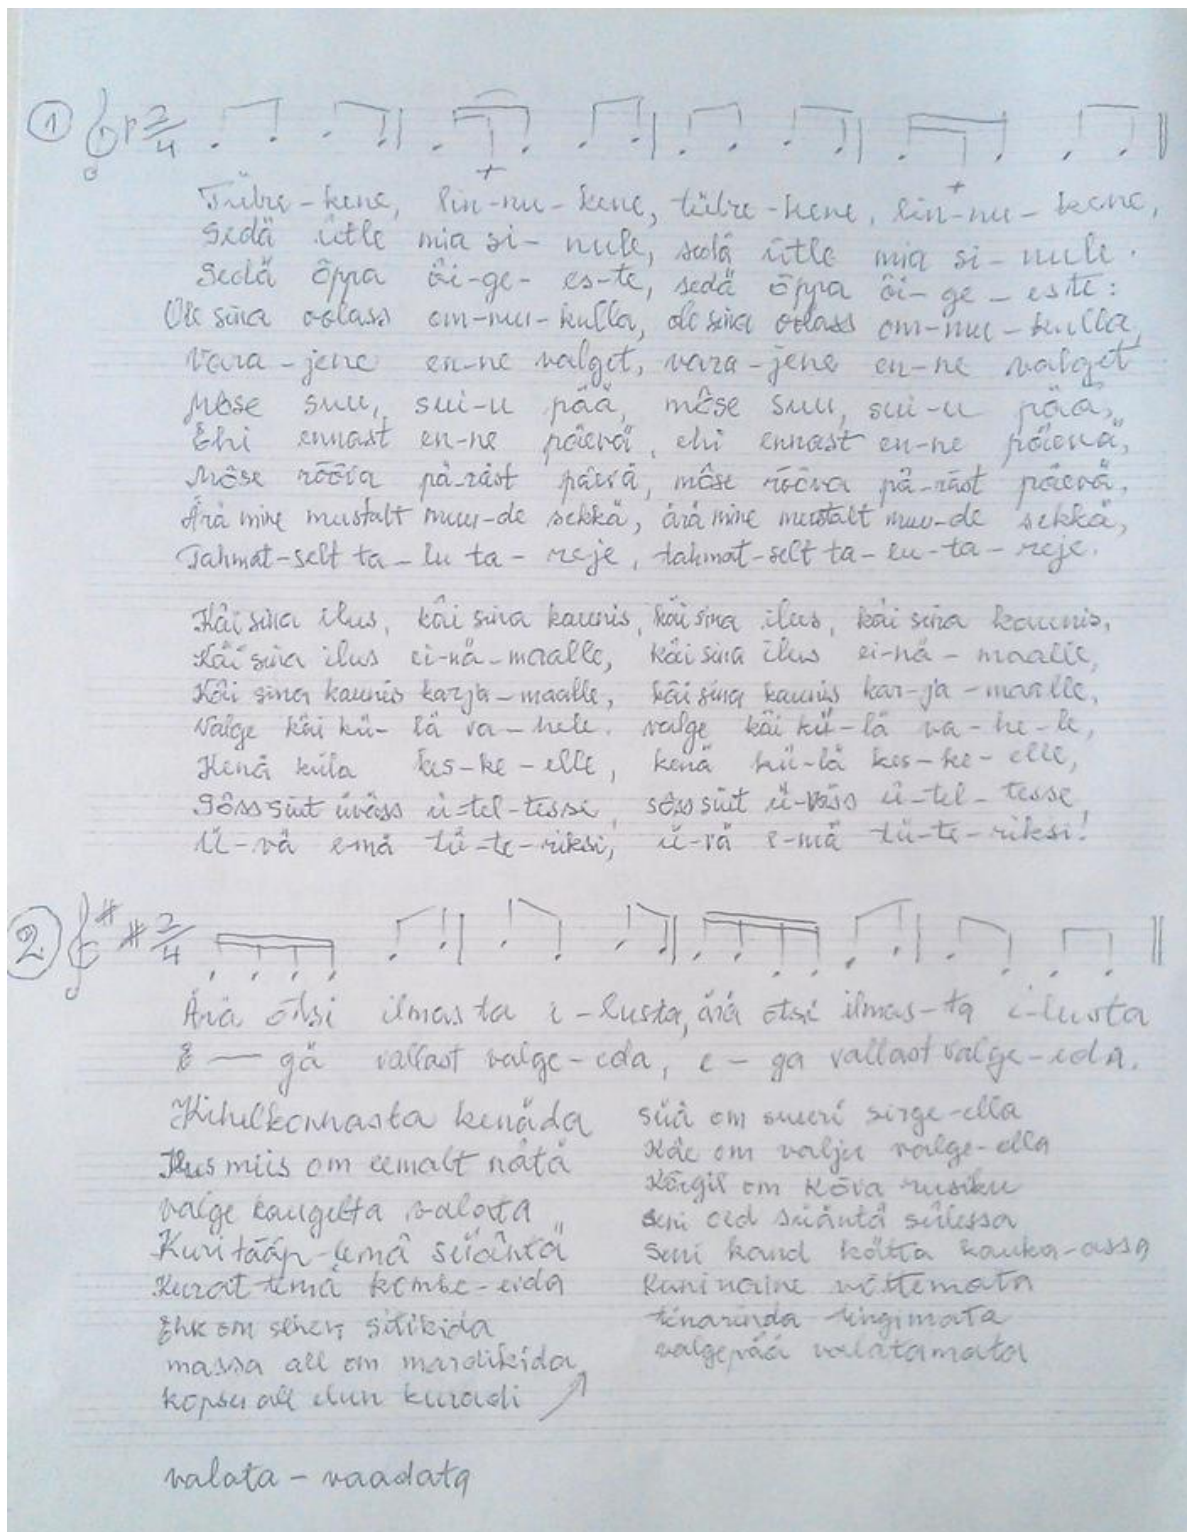 ① 2/4
Tütre-kene, lin-nu-kene, tütre-kene, lin-nu-kene,
Sedä ütle mia si-nule, sedä ütle mia si-nule.
Sedä õppa õi-ge-es-te, sedä õppa õi-ge-este:
Ole sina oolass om-mu-kulla, ole sina oolass om-mu-kulla,
Vara-jene en-ne valget, vara-jene en-ne valget
Mõse suu, sui-u pää, mõse suu, sui-u pää,
Ehi ennast en-ne päevä, ehi ennast en-ne päevä,
Mõse rõõva pä-räst päevä, mõse rõõva pä-räst päevä.
Ärä mine mustalt muu-de sekkä, ärä mine mustalt muu-de sekkä,
Tahmat-selt ta-lu ta-reje, tahmat-selt ta-lu-ta-reje.
Käi sina ilus, käi sina kaunis, käi sina ilus, käi sina kaunis,
Käi sina ilus ei-nä-maalle, käi sina ilus ei-nä-maalle,
Käi sina kaunis karja-maalle, käi sina kaunis kar-ja-maalle,
Valge käi kü-lä va-hele. valge käi kü-lä va-he-le,
Kenä küla kes-ke-elle, kenä kü-lä kes-ke-elle,
Sõss süt üväss ü-tel-tesse, sõss süt ü-väss ü-tel-tesse
Ü-vä emä tü-te-riksi, ü-vä e-mä tü-te-riksi!
2. 2/4
Ärä otsi ilmas ta i-lusta, ärä otsi ilmas-ta i-lusta
E — gä vallast valge-eda, e-ga vallast valge-eda.
Kihelkonnasta kenäda süä om suuri sirge-ella
Ilus miis om eemalt nätä Käe om valju valge-ella
valge kaugelta valata Kõrgil om kõva rusiku
Kuri tääp-temä süäntä seni süäntä sülessa
Kurat temä kombe-eida Seni kand kätta kauka-assa
Ehk om sitikida Kuni naine võttemata
massa all om mardikida tinarinda tingimata
kopsu all elun kuradi ↗ valgepää valatamata
valata - vaadata